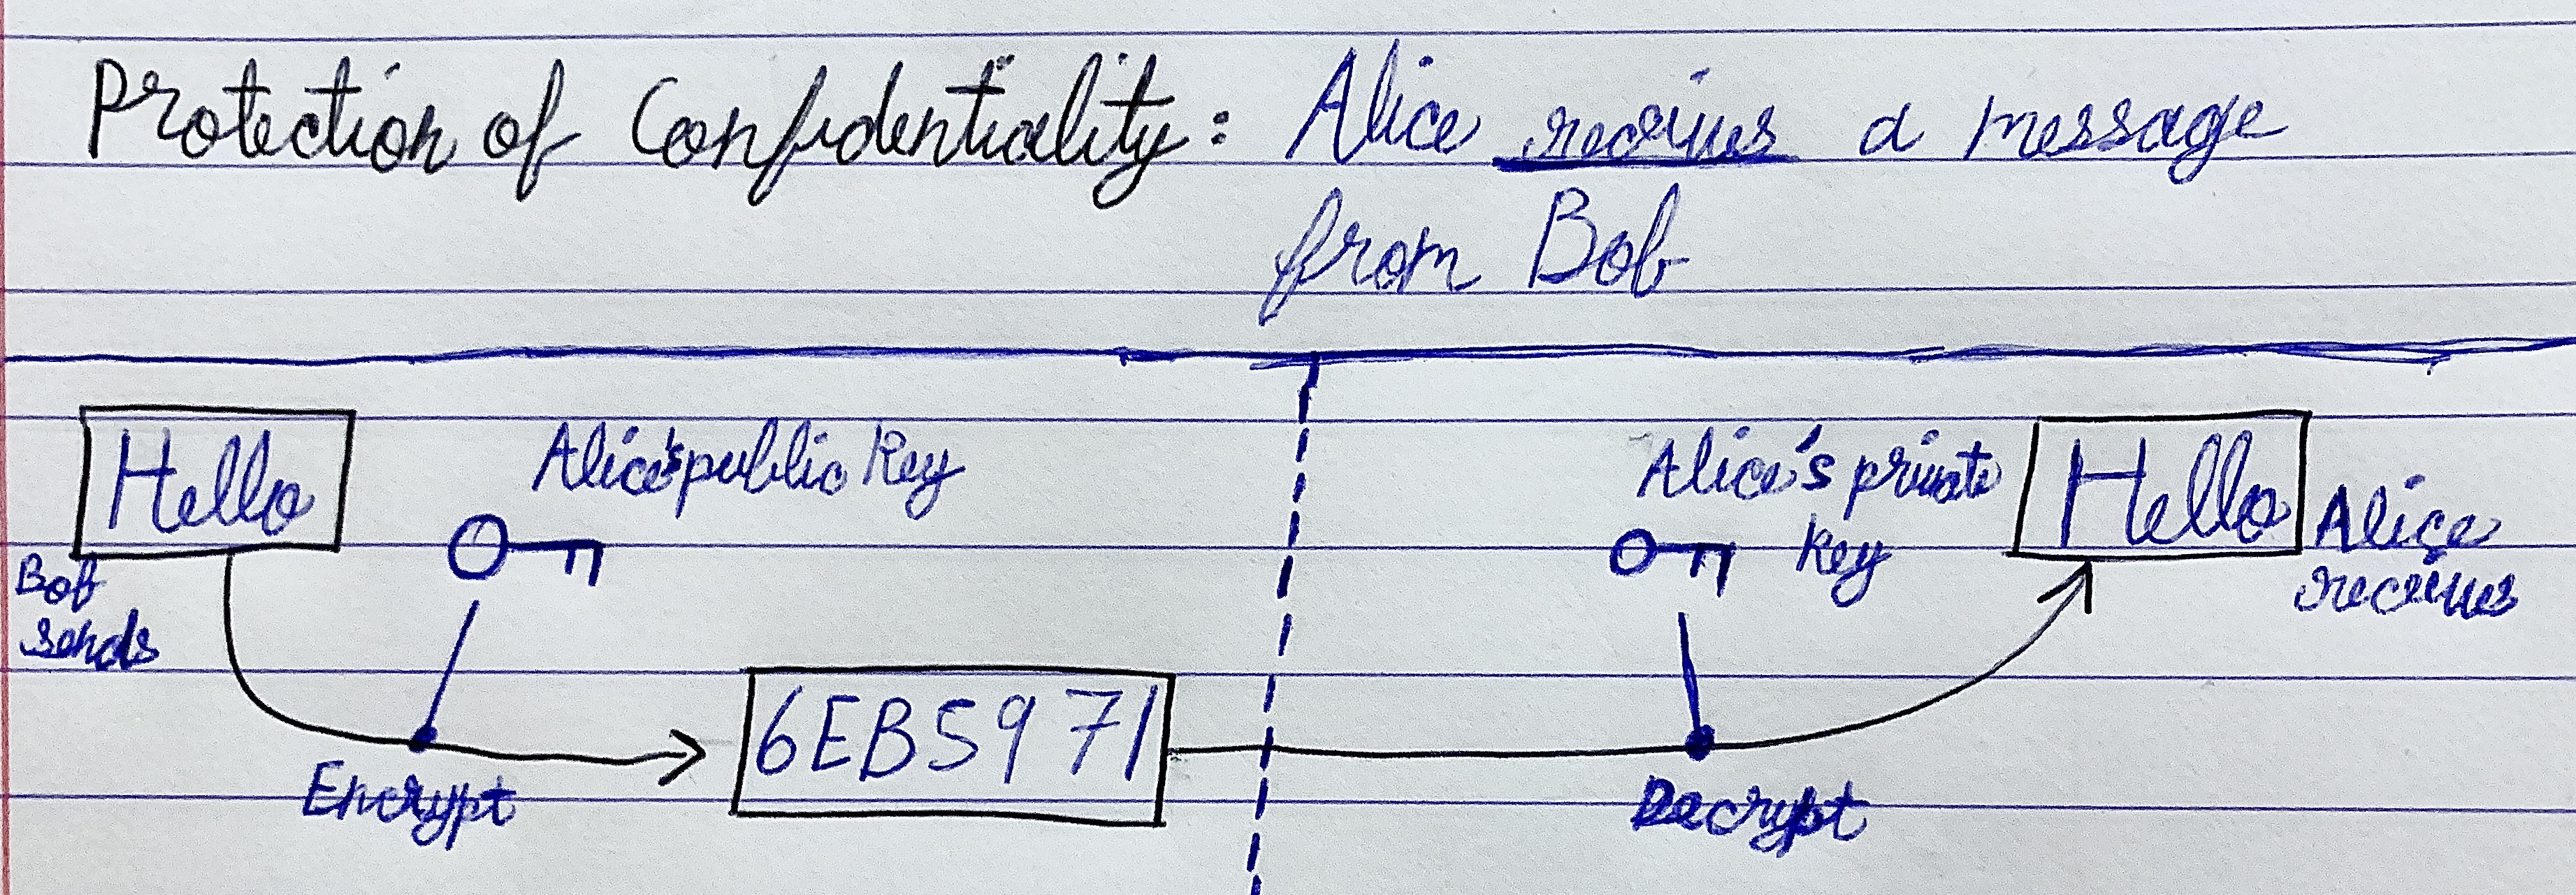 Protection of Confidentiality: Alice receives a message
from Bob
Hello
Bob
sends
Alice's public key
Encrypt
6EB5971
Alice's private
key
Decrypt
Hello
Alice
receives